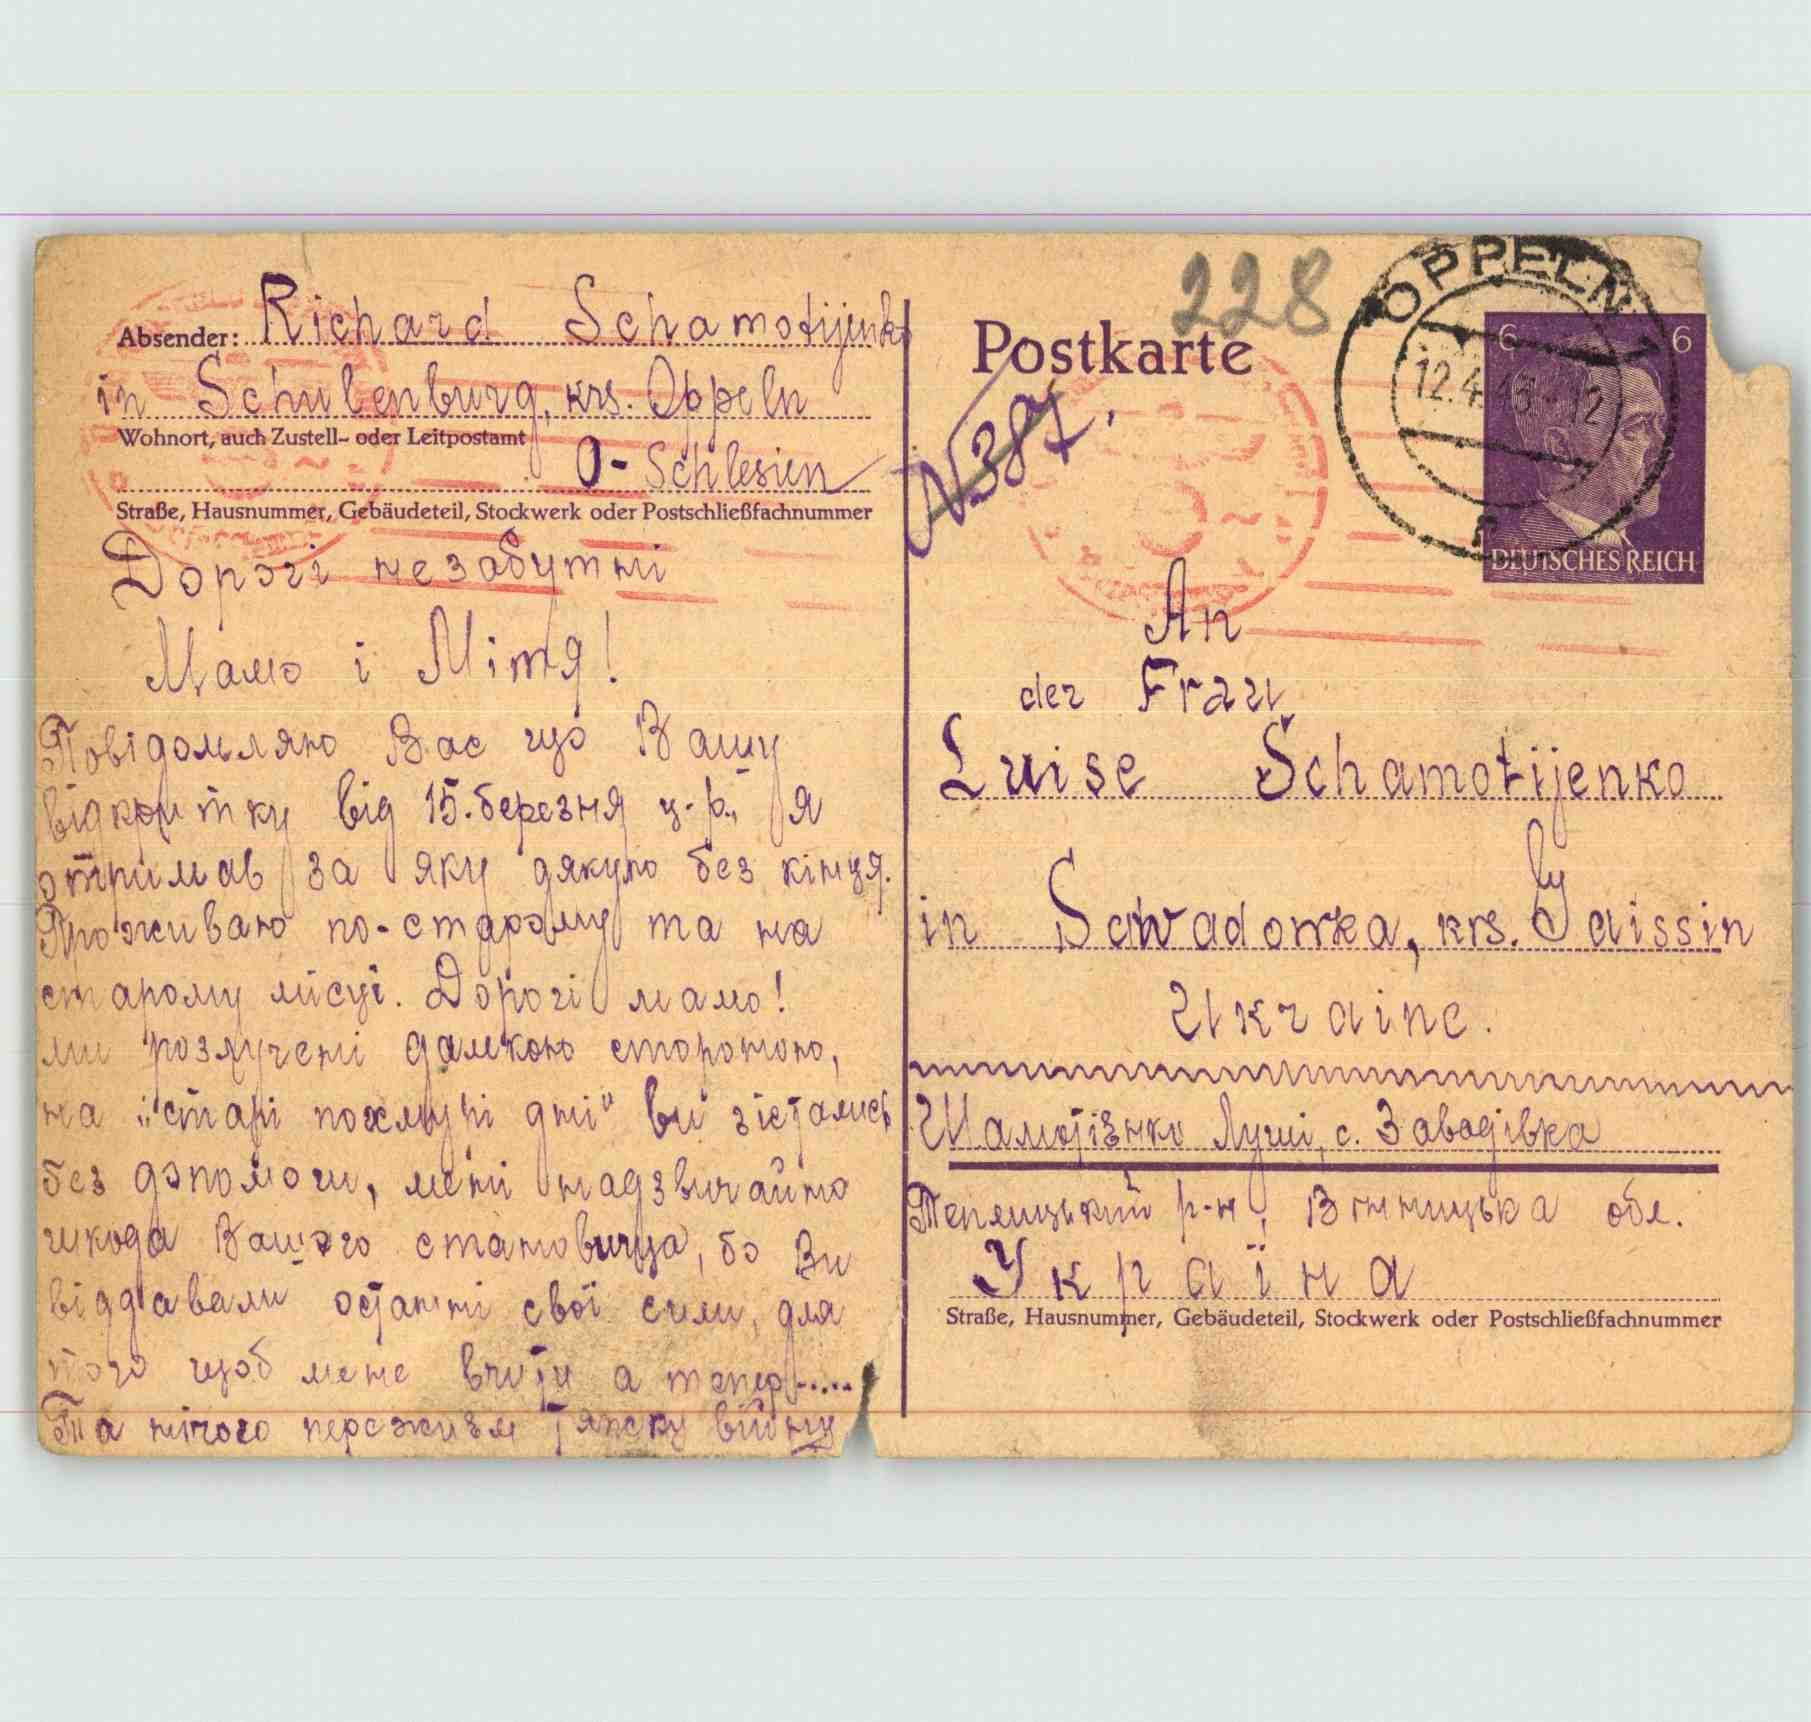 Absender: Richard Schamotijenko
in Schulenburg, krs. Oppeln
Wohnort, auch Zustell- oder Leitpostamt
O-Schlesien
Straße, Hausnummer, Gebäudeteil, Stockwerk oder Postschließfachnummer
Дорогі незабутні
Мамо і Мітя!
Повідомляю Вас що Вашу
відкритку від 15.березня ц.р., я
отримав за яку дякую без кінця.
Проживаю по-старому та на
старому місці. Дорогі мамо!
ми розлучені далекою стороною,
на „старі похмурі дні" ви зістались
без допомоги, мені надзвичайно
шкода Вашого становища, бо Ви
віддавали останні свої сили, для
того щоб мене вчити а тепер.....
Та нічого переживем тяжку війну
228
Postkarte
N387.
OPPELN
12.4.43-12
6 6
DEUTSCHES REICH
An
der Frau
Luise Schamotijenko
in Sawadowka, krs. Gaissin
Ukraine.
Шамотієнко Луши, с. Завадівка
Теплицький р-н, Вінницька обл.
Україна
Straße, Hausnummer, Gebäudeteil, Stockwerk oder Postschließfachnummer